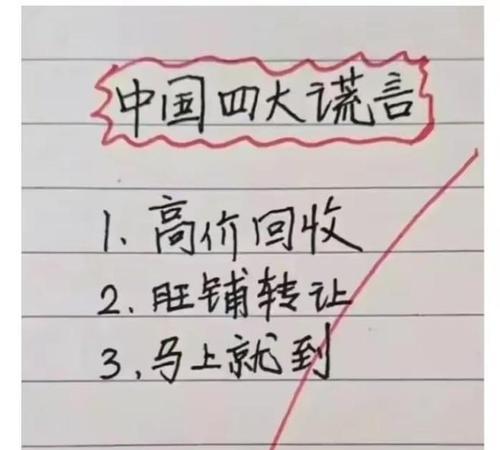 中国四大谎言
1. 高价回收
2. 旺铺转让
3. 马上就到